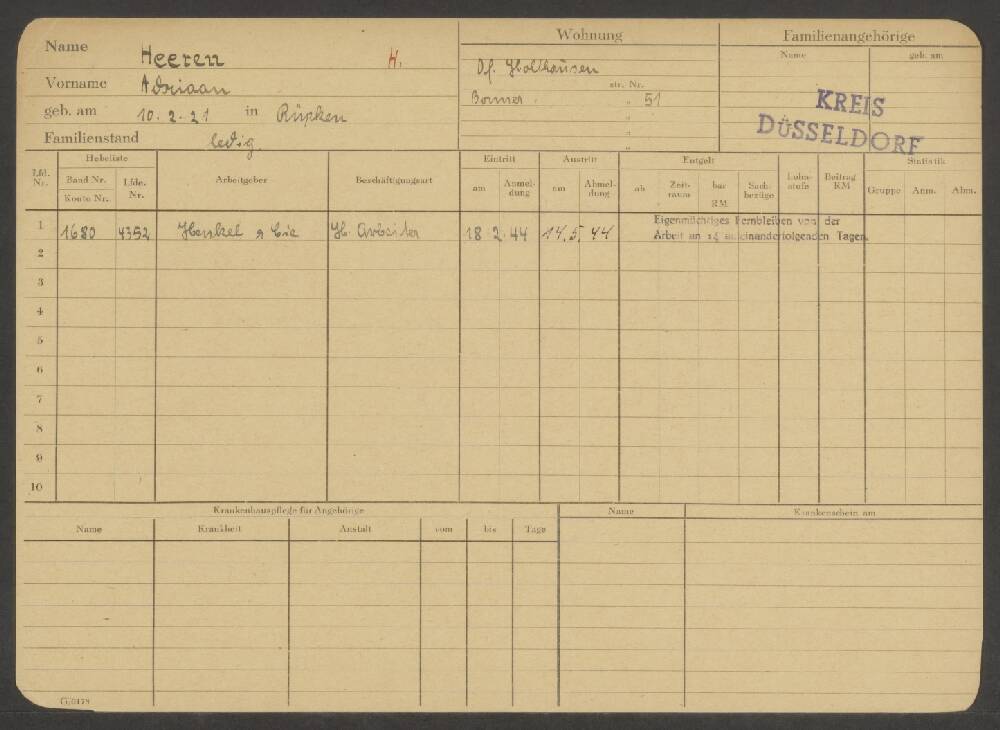 Name Heeren H.
Vorname Adriaan
geb. am 10. 2. 21 in
Familienstand ledig.
Wohnung
Df. Holthausen
str. Nr.
Bonner " 51
"
"
Familienangehörige
Name geb. am
KREIS
DÜSSELDORF
Lfd. Nr.
Hebeliste
Band Nr.
Konto Nr.
Lfde. Nr.
Arbeitgeber
Beschäftigungsart
Eintritt
am
Anmel-
dung
Austritt
am
Abmel-
dung
Entgelt
ab
Zeit-
raum
bar
RM
Sach-
bezüge
Lohn-
stufe
Beitrag
RM
Statistik
Gruppe Anm. Abm.
1 1680 4352 Henkel & Cie Hi. Arbeiter 18 2. 44 14. 5. 44
Eigenmächtiges Fernbleiben von der
Arbeit an 14 aufeinanderfolgenden Tagen.
2
3
4
5
6
7
8
9
10
Krankenhauspflege für Angehörige
Name Krankheit Anstalt vom bis Tage
Name Krankenschein am
G/0178